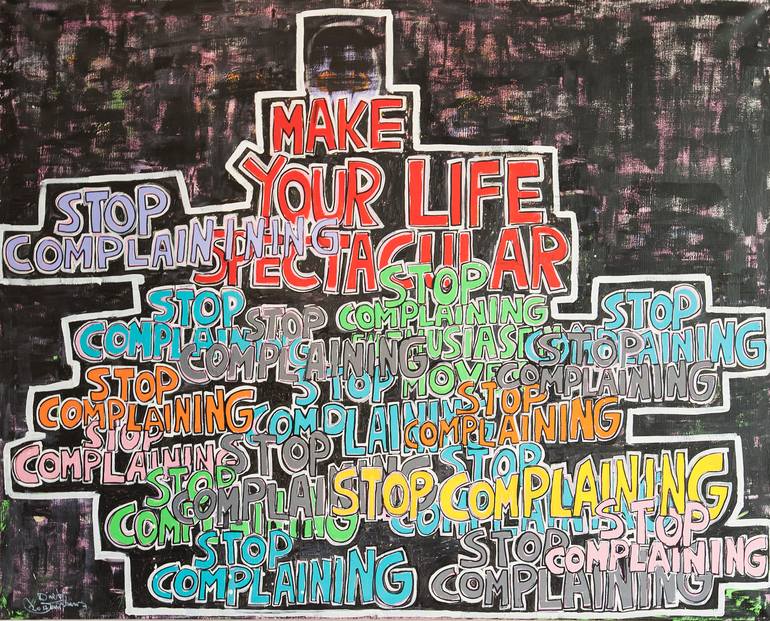 MAKE
YOUR LIFE
SPECTACULAR
STOP
COMPLAINING
STOP
COMPLAINING
STOP
COMPLAINING
STOP
COMPLAINING
STOP
COMPLAINING
STOP
COMPLAINING
MOVE
STOP
COMPLAINING
STOP
COMPLAINING
STOP
COMPLAINING
STOP
COMPLAINING
STOP
COMPLAINING
STOP
STOP COMPLAINING
STOP
COMPLAINING
STOP
COMPLAINING
STOP
COMPLAINING
STOP
COMPLAINING